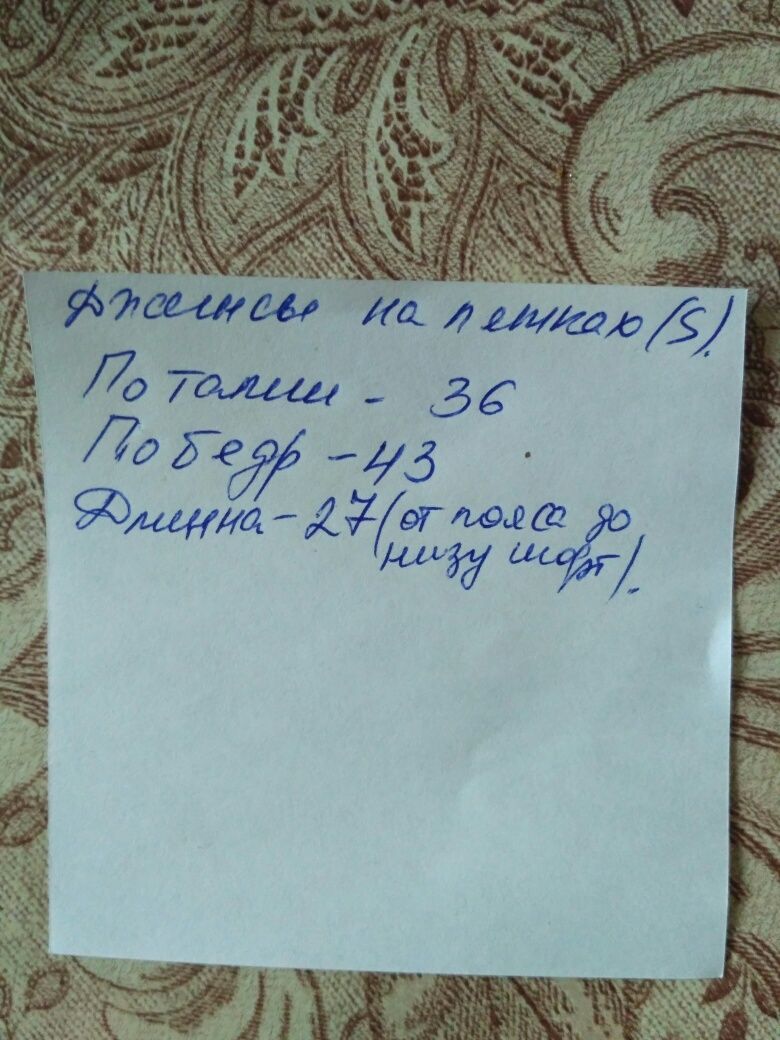 Джинсы на петкаю (S).
По талии - 36
По бедр - 43
Длинна - 27 (от пояса до
низу шорт).